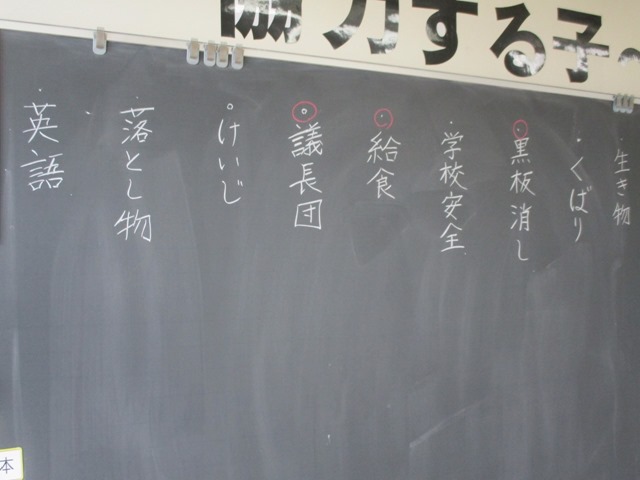 協力する子
生き物
くばり
黒板消し
学校安全
給食
議長団
けいじ
落とし物
英語
本